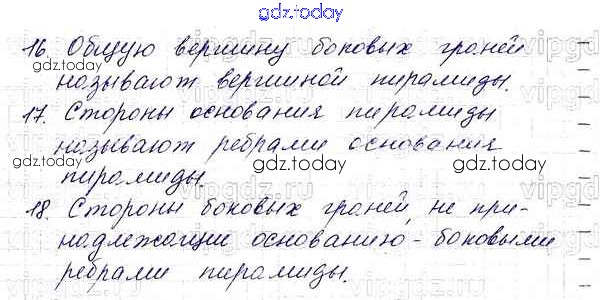 gdz.today
16. Общую вершину боковых граней
называют вершиной пирамиды.
gdz.today gdz.today
17. Стороны основания пирамиды
называют ребрами основания
gdz.today gdz.today
пирамиды.
18. Стороны боковых граней, не при-
надлежащие основанию - боковыми
ребрами пирамиды.